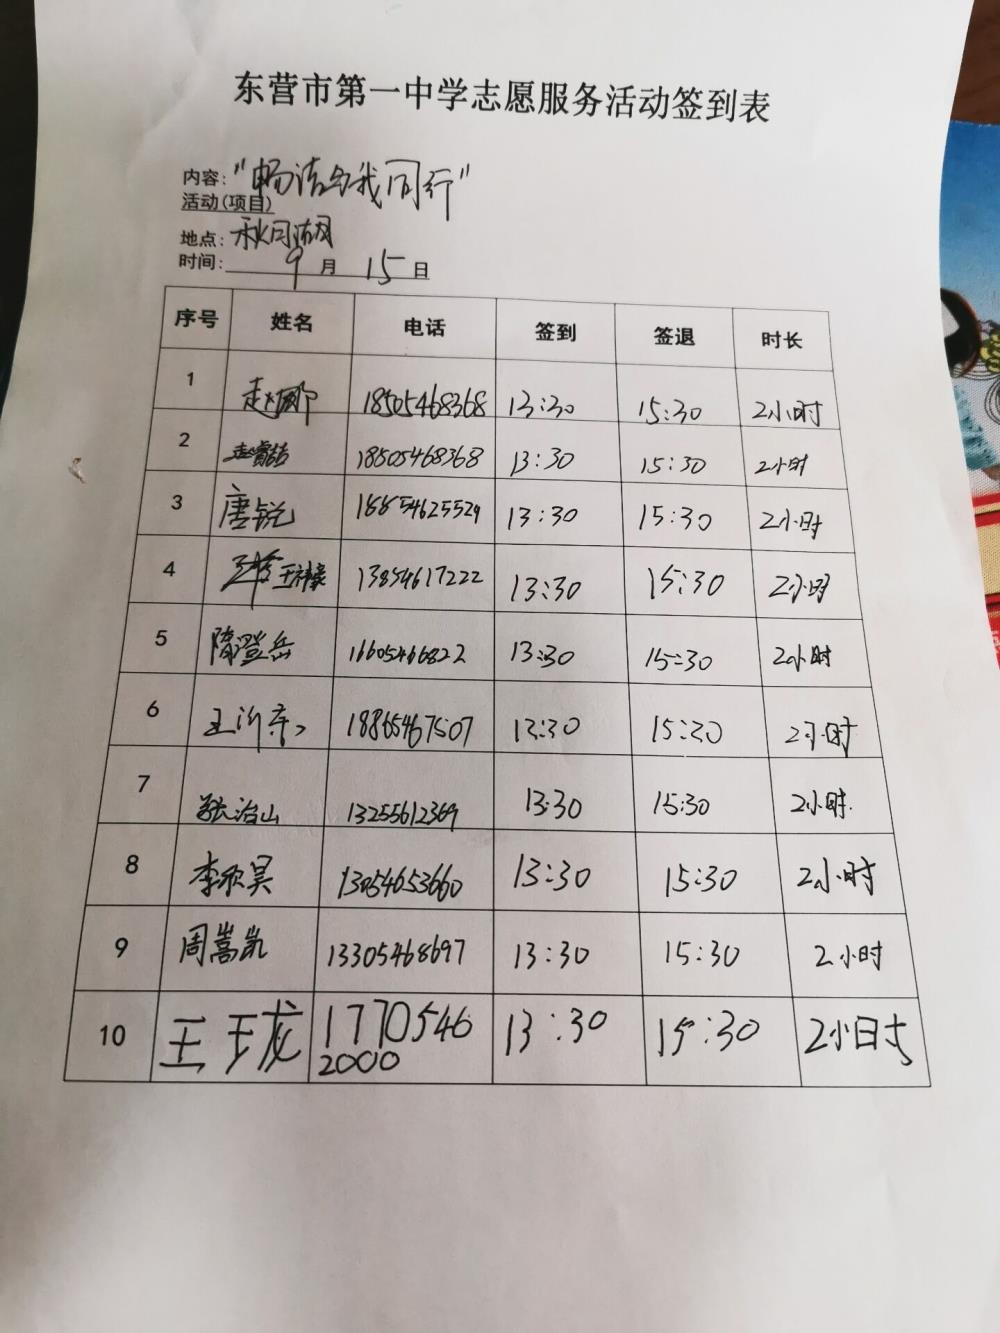 东营市第一中学志愿服务活动签到表
内容："畅洁与我同行"
活动(项目)
地点：秋月湖
时间：9月15日
序号 姓名 电话 签到 签退 时长
1 18505468368 13:30 15:30 2小时
2 18505468368 13:30 15:30 2小时
3 唐锐 18854625529 13:30 15:30 2小时
4 13854617222 13:30 15:30 2小时
5 隋澄岳 16605466822 13:30 15:30 2小时
6 18865467507 13:30 15:30 2小时
7 张治山 13255612369 13:30 15:30 2小时
8 李欣昊 13054653660 13:30 15:30 2小时
9 周嵩凯 13305468697 13:30 15:30 2小时
10 王玉龙 1770546 13:30 15:30 2小时
2000